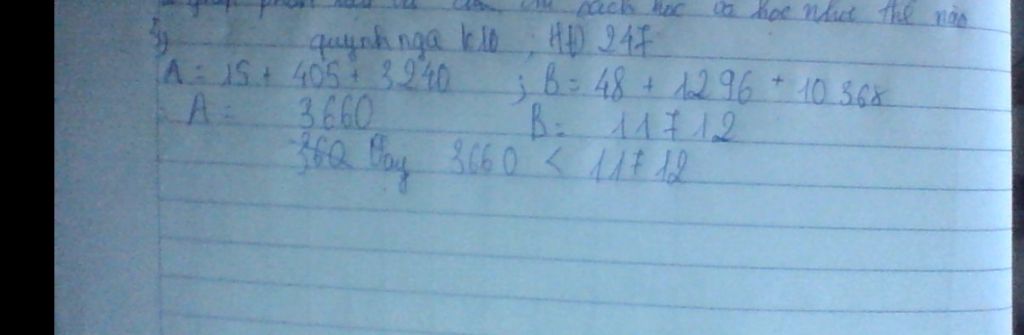 cách học và học như thế nào
quynhnga k10 ; HD 247
A = 15 + 405 + 3240 ; B = 48 + 1296 + 10 368
A = 3660 B = 11712
Vay 3660 < 11712